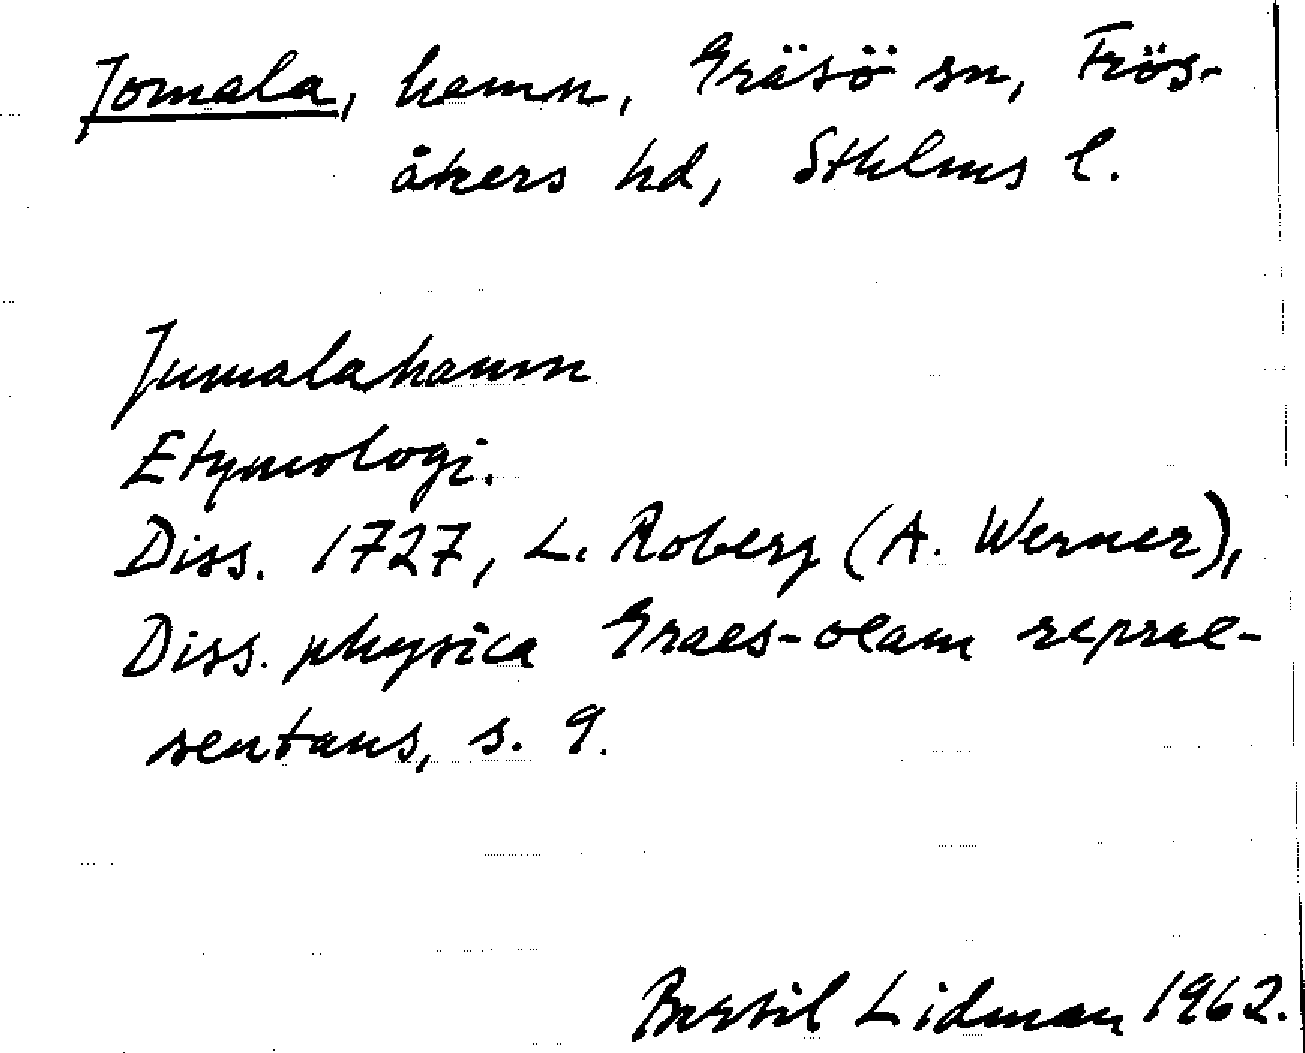 Jomala, hamn, Gräsö sn, Frös-
åkers hd, Sthlms l.
Jumalahamn
Etymologi.
Diss. 1727, L. Roberg (A. Werner),
Diss. physica Graes-oeam reprae-
sentans, s. 9.
Bertil Lidman 1962.